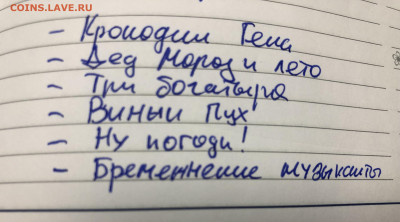 COINS.LAVE.RU
- Крокодил Гена
- Дед Мороз и лето
- Три богатыря
- Винни Пух
- Ну погоди!
- Бременнские музыканты